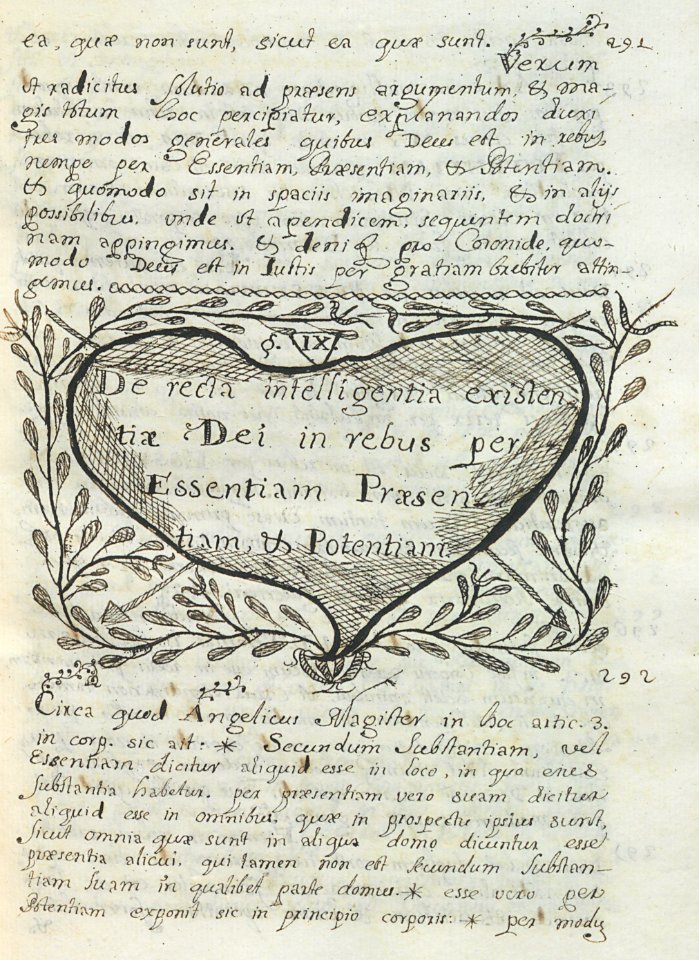 ea, quæ non sunt, sicut ea quæ sunt. 291
Verum
ut radicitus solutio ad præsens argumentum, & ma-
gis totum hoc percipiatur, explanandos duxi
tres modos generales quibus Deus est in rebus
nempe per Essentiam, Præsentiam, & Potentiam.
& quomodo sit in spaciis imaginariis, & in alijs
possibilibus. unde ut apendicem, sequentem doctri
nam appingimus. & deniq pro Coronide, quo-
modo Deus est in Iustis per gratiam brebiter attin-
gemus.
§. IX.
De recta intelligentia existen
tiæ Dei in rebus per
Essentiam Præsen
tiam, & Potentiam.
292
Circa quod Angelicus Magister in hoc artic. 3.
in corp. sic ait: * Secundum Substantiam, vel
Essentiam dicitur aliquid esse in loco, in quo eius
substantia habetur. per præsentiam vero suam dicitur
aliquid esse in omnibus, quæ in prospectu ipsius sunt,
sicut omnia quæ sunt in aliqua domo dicuntur esse
præsentia alicui, qui tamen non est secundum substan-
tiam suam in qualibet parte domus. * esse vero per
Potentiam exponit sic in principio corporis: * per modũ